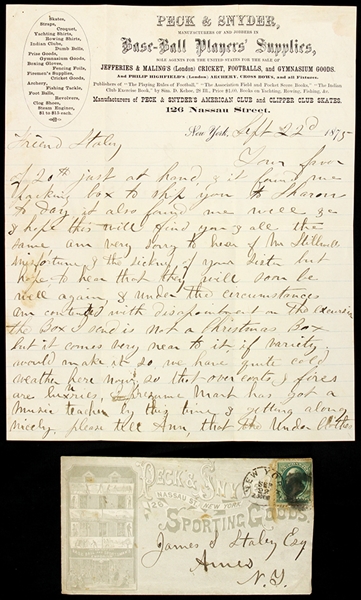 Skates,
Straps,
Croquet,
Yachting Shirts,
Rowing Shirts,
Indian Clubs,
Dumb Bells,
Prize Goods,
Gymnasium Goods,
Boxing Gloves,
Fencing Foils,
Firemen's Supplies,
Cricket Goods,
Archery,
Fishing Tackle,
Foot Balls,
Revolvers,
Clog Shoes,
Steam Engines,
$1 to $15 each.
PECK & SNYDER,
MANUFACTURERS OF AND JOBBERS IN
Base-Ball Players' Supplies,
SOLE AGENTS FOR THE UNITED STATES FOR THE SALE OF
JEFFERIES & MALINGS (London) CRICKET, FOOTBALLS, AND GYMNASIUM GOODS.
And PHILIP HIGHFIELD'S (London) ARCHERY, CROSS BOWS, and all Fixtures.
Publishers of "The Playing Rules of Football," "The Association Field and Pocket Score Books," "The Indian
Club Exercise Book," by Sim. D. Kehoe, Price $1.00. Books on Yachting, Rowing, Fishing, &c.
Manufacturers of PECK & SNYDER'S AMERICAN CLUB and CLIPPER CLUB SKATES.
126 Nassau Street.
New York, Sept 22d 1875
Friend Staley
Your favor
of 20th just at hand, & it found me
packing box to ship you to Sharon
to day, it also found me well &
I hope this will find you & all the
same am very sorry to hear of Mr Stillwell
misfortune, & the sickness of your Sister but
hope to hear that they will soon be
well again, & under the circumstances
am contented with disapointment on the excursion
the box I send is not a Christmas Box
but it comes very near to it if variety
would make it so, we have quite cold
weather here now, so that over coats & fires
are luxuries, I presume Mart has got a
Music teacher by this time & getting along
nicely, please tell Ann, that the Under Clothes
PECK & SNYDER
126 NASSAU ST. NEW YORK
SPORTING GOODS.
NEW YORK
SEP
22
James J Staley Esq
Ames
N.Y.